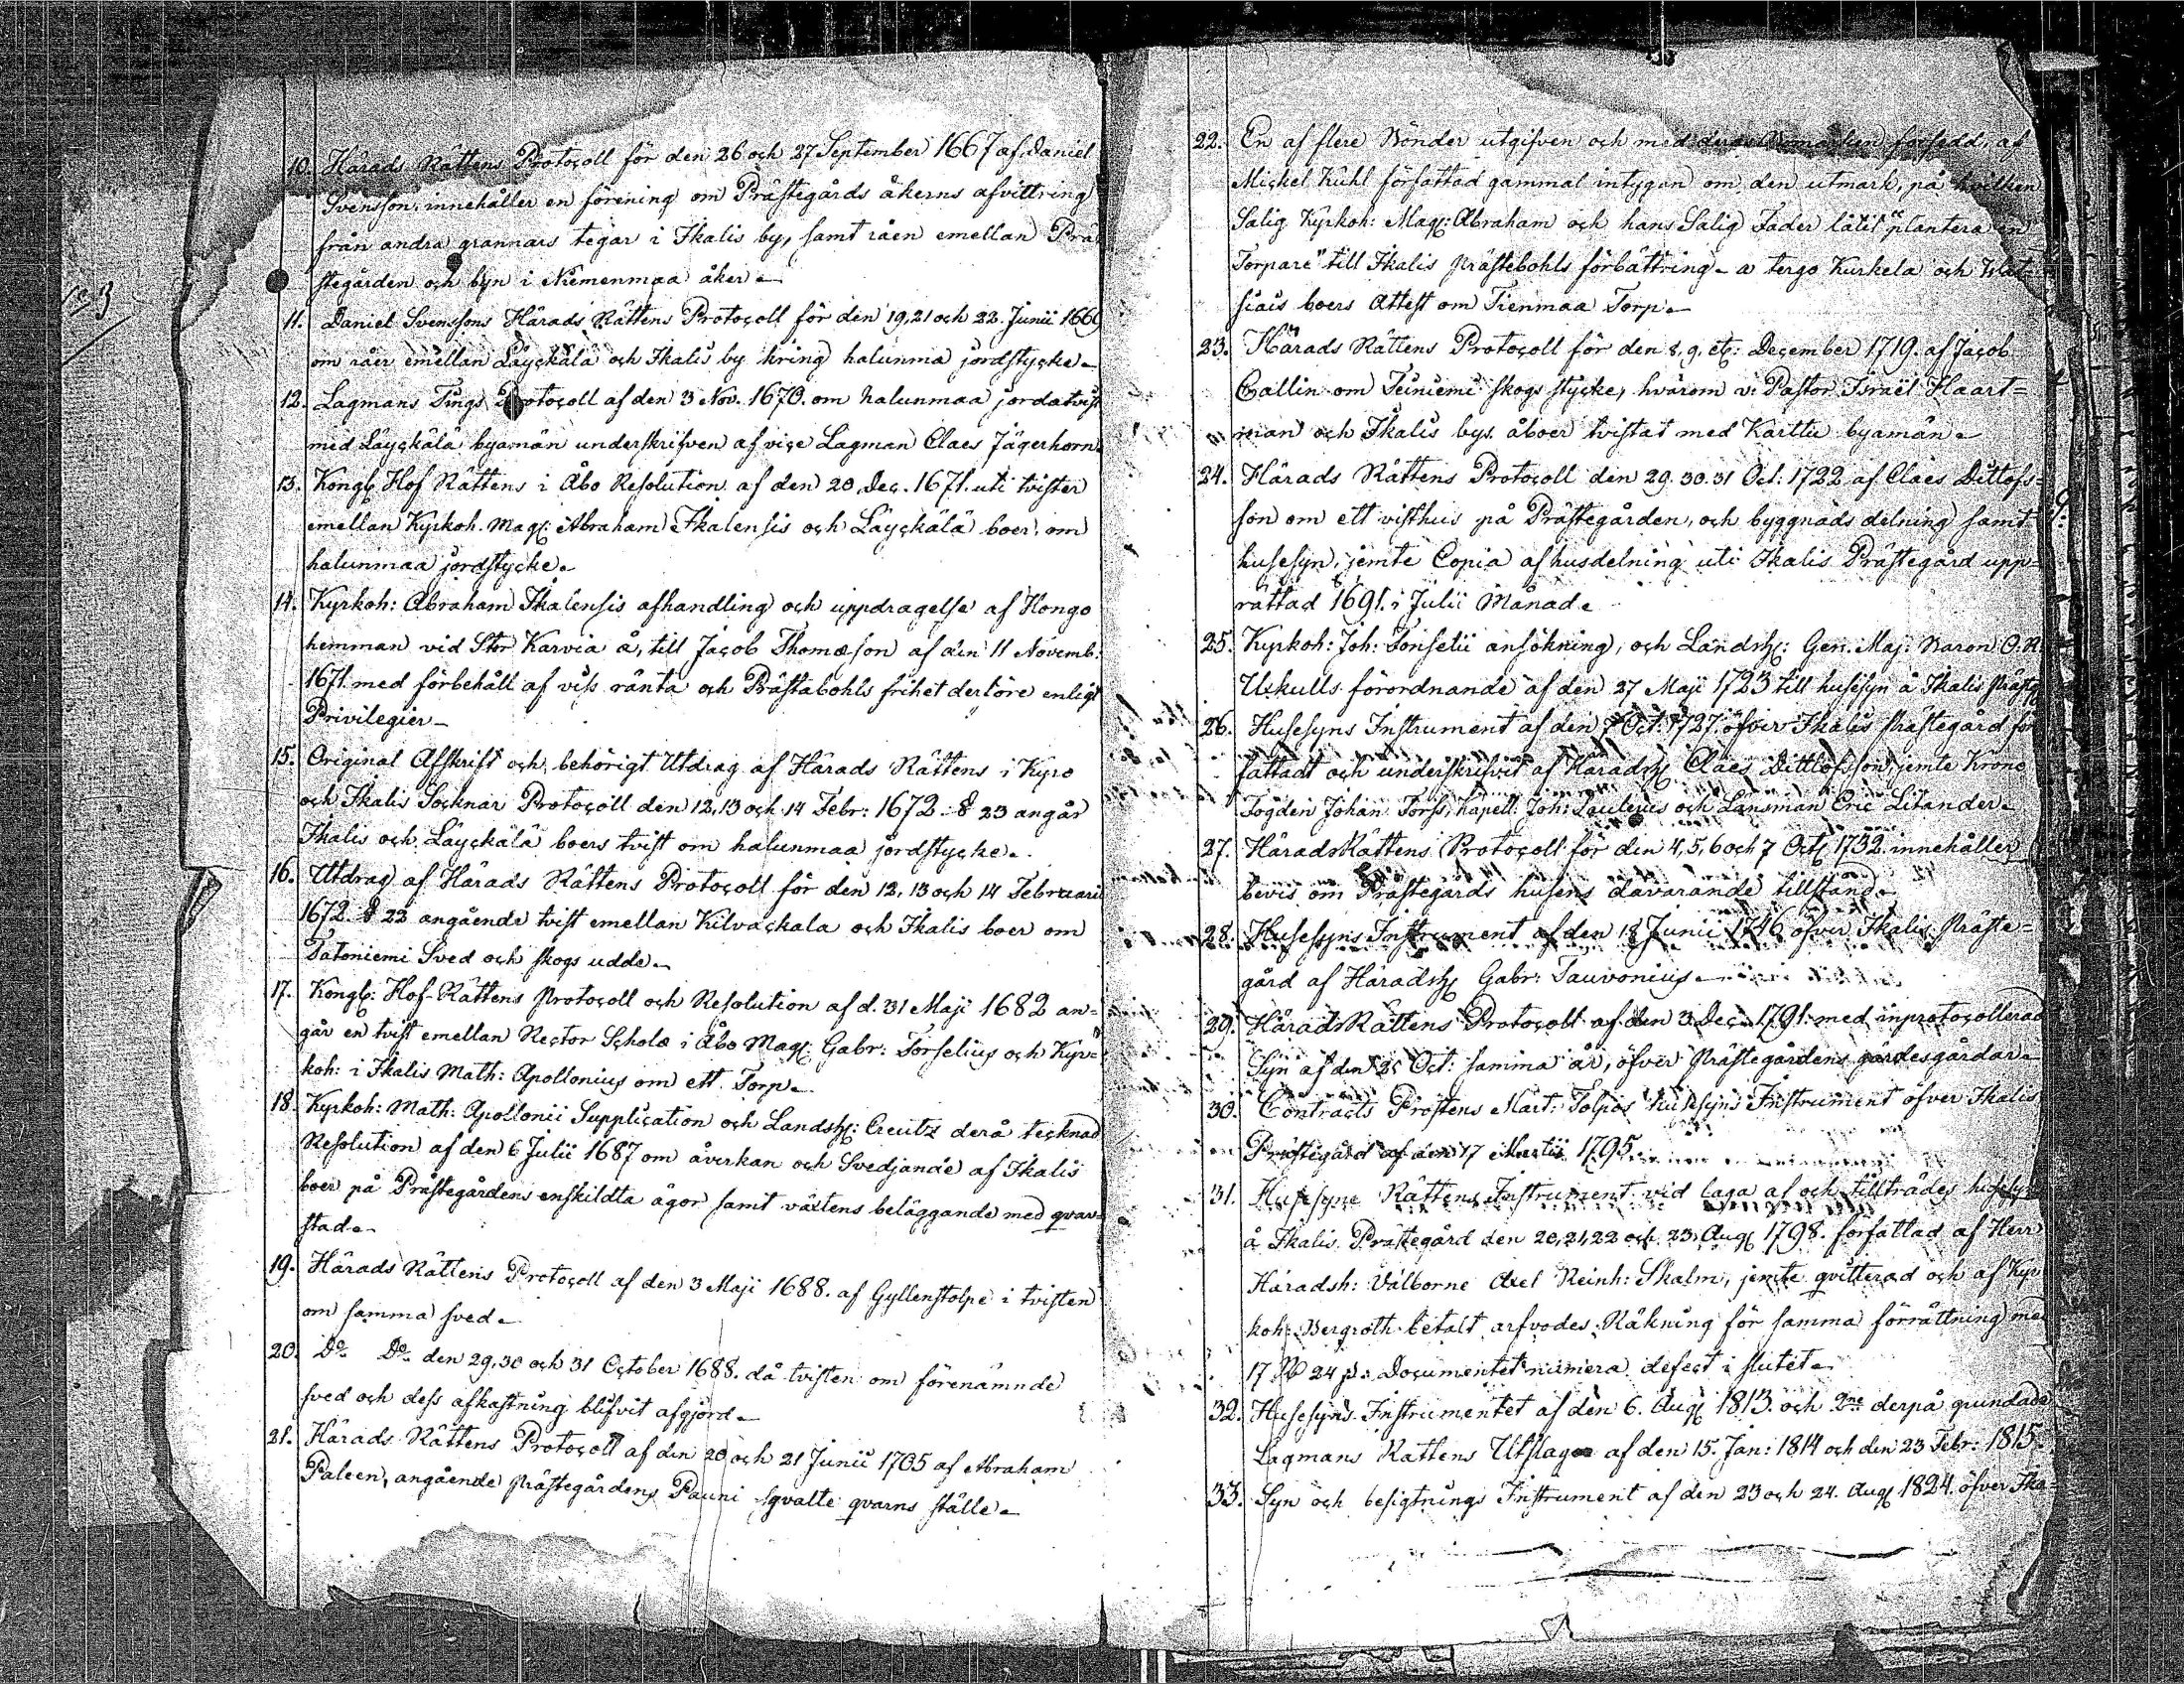 10. Härads Rättens Protocoll för den 26 och 27 September 1667 af Daniel
Svensson, innehåller en förening om Prästegårds åkerns afvittring
från andra grannars tegar i Ikalis by, samt råen emellan Prä
stegården och byn i Niemenmaa åker.
11. Daniel Svenssons Härads Rättens Protocoll för den 19, 21 och 22. Junii 1669
om råer emellan Läyckälä och Ikalis by kring halunma jordstycke.
12. Lagmans Tings Protocoll af den 3 Nov. 1670. om halunmaa jorda tvist
med Läyckälä byamän underskrifven af vice Lagman Claes Jägerhorn.
13. Kongl Hof Rättens i Åbo Resolution af den 20 Dec. 1671. uti tvister
emellan Kyrkoh. Mag: Abraham Ikalensis och Läyckälä boer, om
halunmaa jordstycke.
14. Kyrkoh: Abraham Ikalensis afhandling och uppdragelse af Hongo
hemman vid Stor Karvia å, till Jacob Thomæson af den 11 Novemb:
1671. med förbehåll af viss ränta och Prästabohls frihet dertöre enligt
Privilegier
15. Original Afskrift och behörigt Utdrag af Härads Rättens i Kyro
och Ikalis Socknar Protocoll den 12, 13 och 14 Febr: 1672 § 23 angår
Ikalis och Läyckälä boers tvist om halunmaa jordstycke.
16. Utdrag af Härads Rättens Protocoll för den 12, 13 och 14 Februarii
1672. § 22 angående tvist emellan Kilvackala och Ikalis boer om
Tatoniemi Sved och skogs udde.
17. Kongl: Hof-Rättens Protocoll och Resolution af d. 31 Maji 1682 an=
går en tvist emellan Rector Scholæ i Åbo Mag: Gabr: Forselius och Kyr=
koh: i Ikalis Math: Apollonius om ett Torp.
18. Kyrkoh: Math: Apollonii Supplication och Landsh: Creutz derå tecknad
Resolution af den 6 Julii 1687 om åverkan och Svedjande af Ikalis
boer på Prästegårdens enskildta ägor samt växtens beläggande med qvar=
stad.
19. Härads Rättens Protocoll af den 3 Maji 1688. af Gyllenstolpe i tvisten
om samma sved.
20. Do Do den 29, 30 och 31 October 1688. då tvisten om förenämnde
sved och dess afkastning blifvit afgjord.
21. Härads Rättens Protocoll af den 20 och 21 Junii 1705 af Abraham
Paleen, angående Prästegårdens Pauni sqvalte qvarns ställe.
22. En af flere Bönder utgifven och med deras Bomärken försedd, af
Mickel Kuhl författad gammal intygan om den utmark, på hvilken
Salig Kyrkoh: Mag: Abraham och hans Salig Fader låtit "plantera en
Torpare" till Ikalis Prästebohls förbättring. a tergo Kurkela och
siais boers Attest om Tienmaa Torp.
23. Härads Rättens Protocoll för den 8, 9, etc: December 1719. af Jacob
Gallin om Teiniemi skogs stycke, hvarom v: Pastor Israel Haart=
man och Ikalis bys åboer tvistat med Karttu byamän.
24. Härads Rättens Protocoll den 29. 30. 31 Oct: 1722 af Claes Dittofs=
son om ett visthus på Prästegården, och byggnads delning samt
husesyn, jemte Copia af husdelning uti Ikalis Prästegård upp=
rättad 1691. i Julii Månad.
25. Kyrkoh: Joh: Tonselii ansökning, och Landsh: Gen. Maj: Baron O. R.
Uxkulls förordnande af den 27 Maji 1723 till husesyn å Ikalis Prästg
26. Husesyns Instrument af den 7 Oct: 1727. öfver Ikalis Prästegård för
fattadt och underskrifvit af Häradsh Claes Dittlofsson, jemte Krono
Fogden Johan Forss, Kapell: Joh: Paulenius och Länsman Eric Litander.
27. Härads Rättens Protocoll för den 4, 5, 6 och 7 Oct 1732. innehåller
bevis om Prästegårds husens davarande tillstånd.
28. Husesyns Instrument af den 18 Junii 1746 öfver Ikalis Präste=
gård af Häradsh Gabr: Tauvonius.
29. Härads Rättens Protocoll af den 3 Dec. 1791. med inprotocollerad
Syn af den 25 Oct: samma år, öfver Prästegårdens gärdesgårdar.
30. Contracts Prostens Mart: Tolpos husesyns Instrument öfver Ikalis
Prästegård af den 17 Martii 1795.
31. Husesyns Rättens Instrument vid laga af och tillträdes husesyn
å Ikalis Prästegård den 20, 21, 22 och 23. Aug 1798. författad af Herr
Häradsh: Välborne Axel Reinh: Skalm, jemte qvitterad och af Kyr
koh: Bergroth betalt arfvodes Räkning för samma förrättning med
17 24 Documentet numera defect i slutet.
32. Husesyns Instrumentet af den 6. Aug 1813. och 2ne derpå grundade
Lagmans Rattens Utslag af den 15. Jan: 1814 och den 23 Febr: 1815.
33. Syn och besigtnings Instrument af den 23 och 24. Aug 1824. öfver Ika=